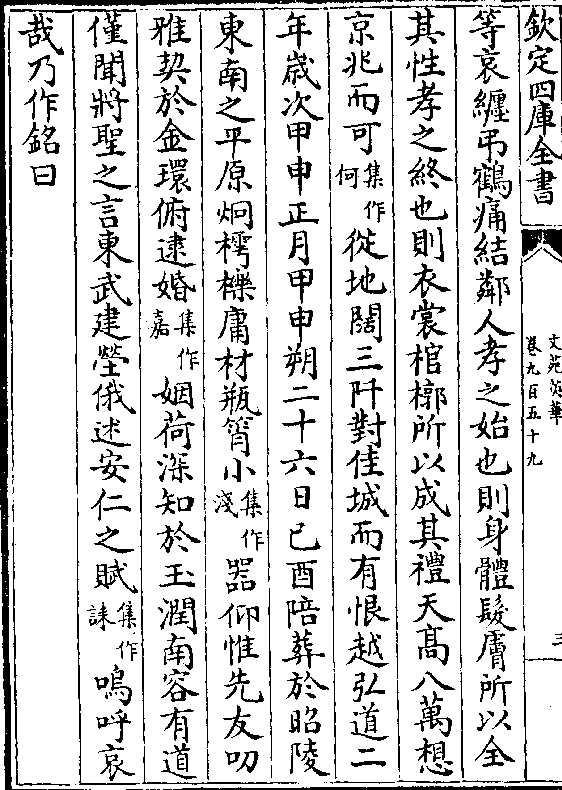 欽定四庫全書
文苑英華
卷九百五十九
三
等哀纏弔鶴痛結鄰人孝之始也則身體髮膚所以全
其性孝之終也則衣裳棺槨所以成其禮天髙八萬想
京兆而可集作何從地闊三阡對佳城而有恨越弘道二
年歳次甲申正月甲申朔二十六日己酉陪葬於昭陵
東南之平原炯樗櫟庸材瓶筲小集作淺器仰惟先友叨
雅契於金環俯逮婚集作嘉姻荷深知於玉潤南容有道
僅聞將聖之言東武建塋俄述安仁之賦集作誄嗚呼哀
哉乃作銘曰